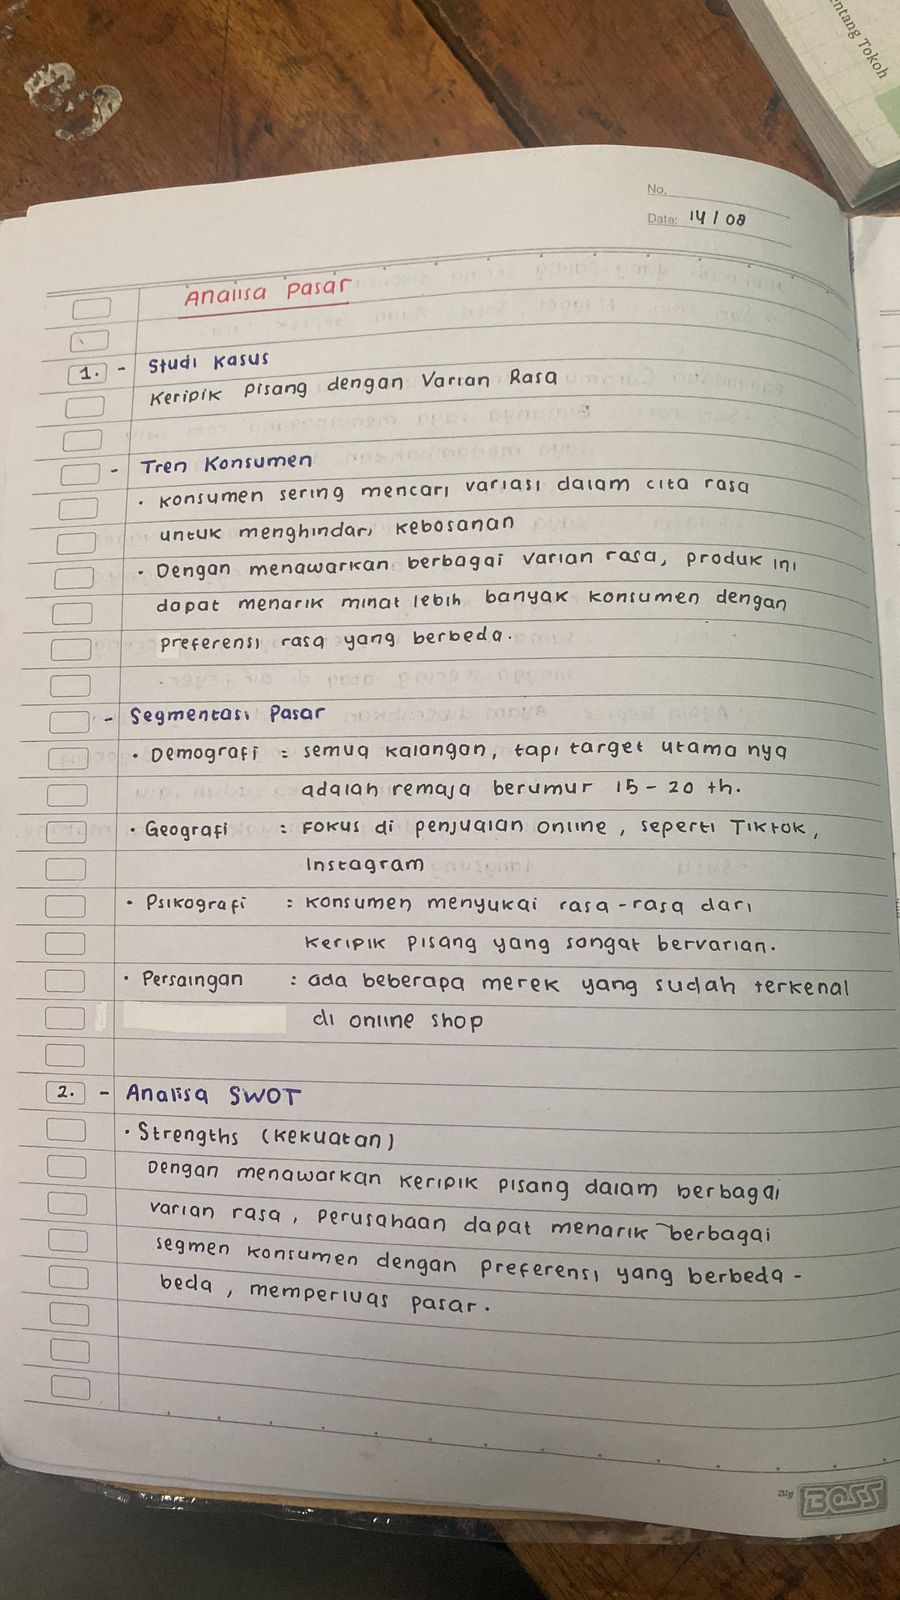 entang Tokoh
No.
Date: 14 / 08
Analisa Pasar
1. - Studi Kasus
Keripik pisang dengan Varian Rasa
- Tren Konsumen
· Konsumen sering mencari variasi dalam cita rasa
untuk menghindari kebosanan
· Dengan menawarkan berbagai varian rasa, produk ini
dapat menarik minat lebih banyak konsumen dengan
preferensi rasa yang berbeda.
- Segmentasi Pasar
· Demografi : semua kalangan, tapi target utama nya
adalah remaja berumur 15 - 20 th.
· Geografi : Fokus di penjualan online, seperti TikTok,
Instagram
· Psikografi : Konsumen menyukai rasa-rasa dari
keripik pisang yang sangat bervarian.
· Persaingan : ada beberapa merek yang sudah terkenal
di online shop
2. - Analisa SWOT
· Strengths (kekuatan)
Dengan menawarkan keripik pisang dalam berbagai
varian rasa, perusahaan dapat menarik berbagai
segmen konsumen dengan preferensi yang berbeda -
beda, memperluas pasar.
Big BOSS